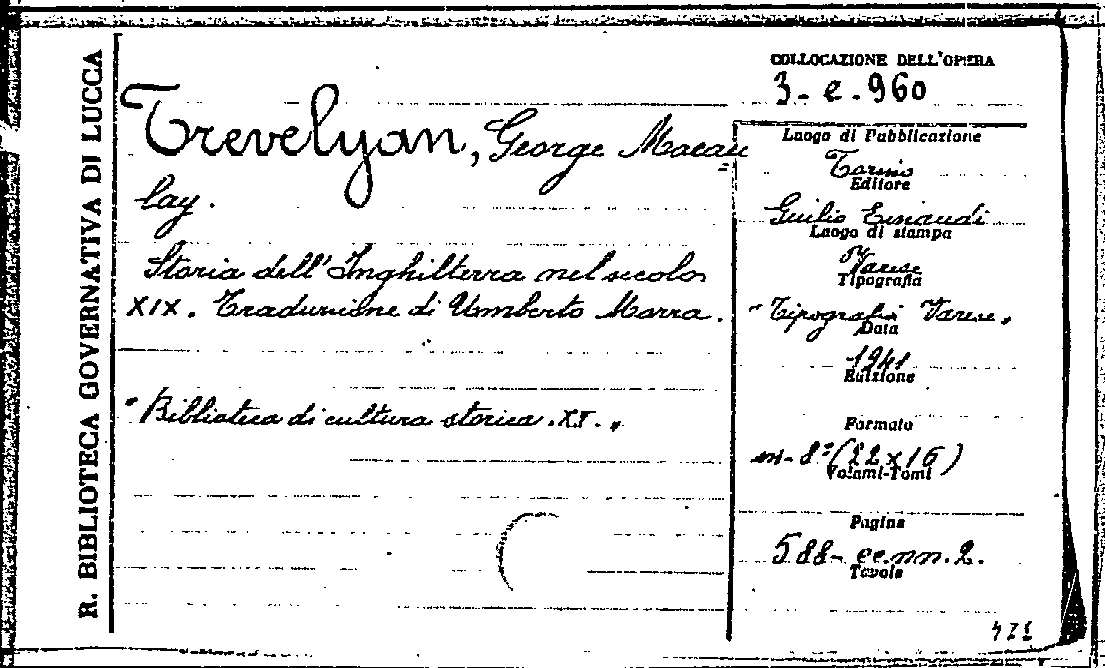 R. BIBLIOTECA GOVERNATIVA DI LUCCA
COLLOCAZIONE DELL'OPERA
3-e-960
Trevelyan, George Macau=
lay.
Storia dell'Inghilterra nel secolo
XIX. Traduzione di Umberto Morra.
"Biblioteca di cultura storica. XI."
Luogo di Pubblicazione
Torino
Editore
Giulio Einaudi
Luogo di stampa
Varese
Tipografia
"Tipografia Varese"
Data
1941
Edizione
Formato
in-8° (22x16)
Volumi-Tomi
Pagine
588-cc.nn.2.
Tavole